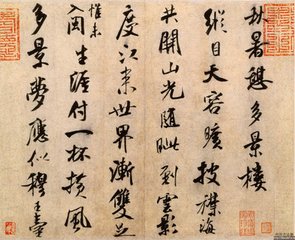 秋暑憩多景樓
縱目天容曠披襟海
共開山光隨眺到雲影
度江來世界漸雙足
惟未
生涯付一杯橫風
多景夢應似穆王臺